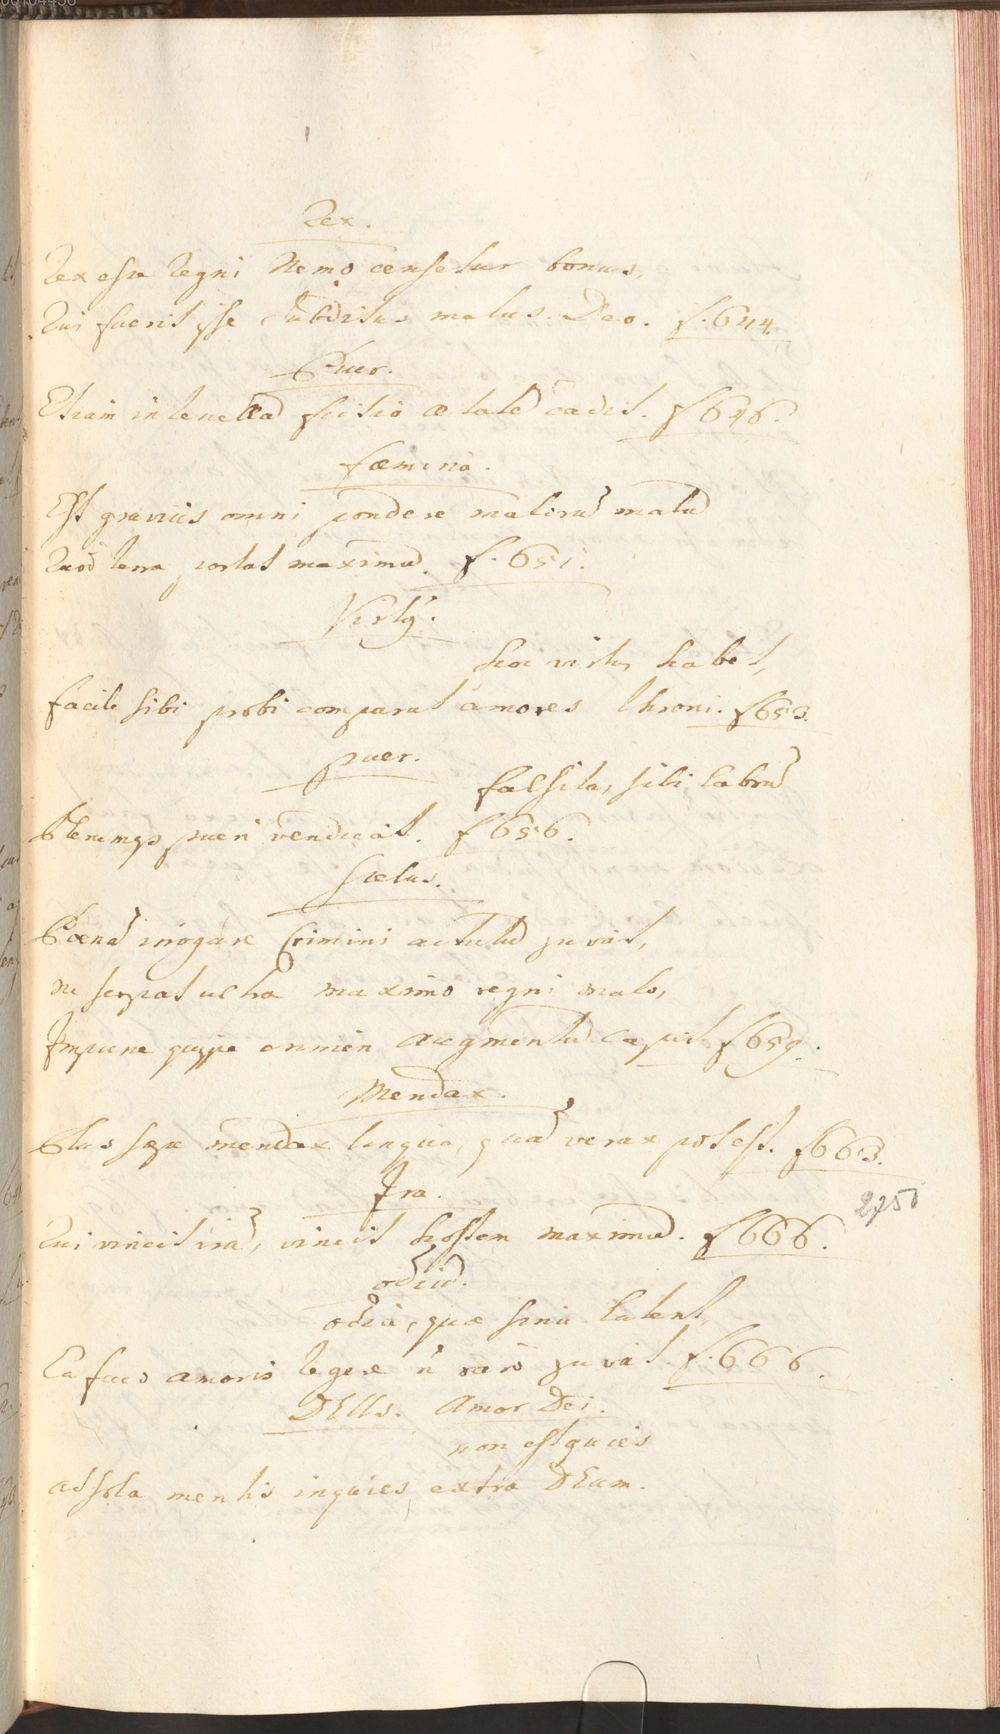 Rex.
Rex esse regni nemo censetur bonus,
Qui fuerit ipse subditus malus Deo. f. 644.
Puer.
Etiam in tenellā fictio ætatē cadit. f 646.
fœmina.
Est gravius omni pondere malorū malū
Quod terra portat maximū. f. 651.
Virtꝰ.
hoc virtus habet,
facile sibi probi comparat amores throni. f 653.
puer.
falsitas sibi labrū
Plerumqꝫ pueri vendicat. f 656.
Scelus.
Pœnā irrogare crimini actutū juvat,
ne serpat ultra maximo regni malo,
Impune quippe crimen augmentū capit f 659.
Mendax.
Plus sæpe mendax lingua, quā verax potest. f 663.
Ira.
2750
Qui vincit irā, vincit hostem maximū. f 666.
odiū.
odia, quæ sinu latent,
Ea fuco amoris tegere ñ raro juvat. f. 666.
DEUs. Amor Dei.
non est quies
at sola mentis inquies extra DEum.